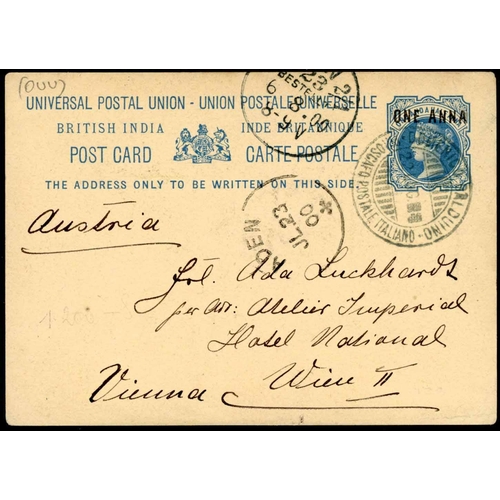 (OUU)
UNIVERSAL POSTAL UNION - UNION POSTALE UNIVERSELLE
BRITISH INDIA INDE BRITANNIQUE
POST CARD CARTE POSTALE
THE ADDRESS ONLY TO BE WRITTEN ON THIS SIDE
ONE ANNA
BESTELLT
6.8.00
8-9½V
PIROSCAFO POSTALE ITALIANO -
ADEN
JL 23
00
Austria
Frl. Ada Luckhardt
per Adr: Atelier Imperial
Hotel National
Vienna Wien II